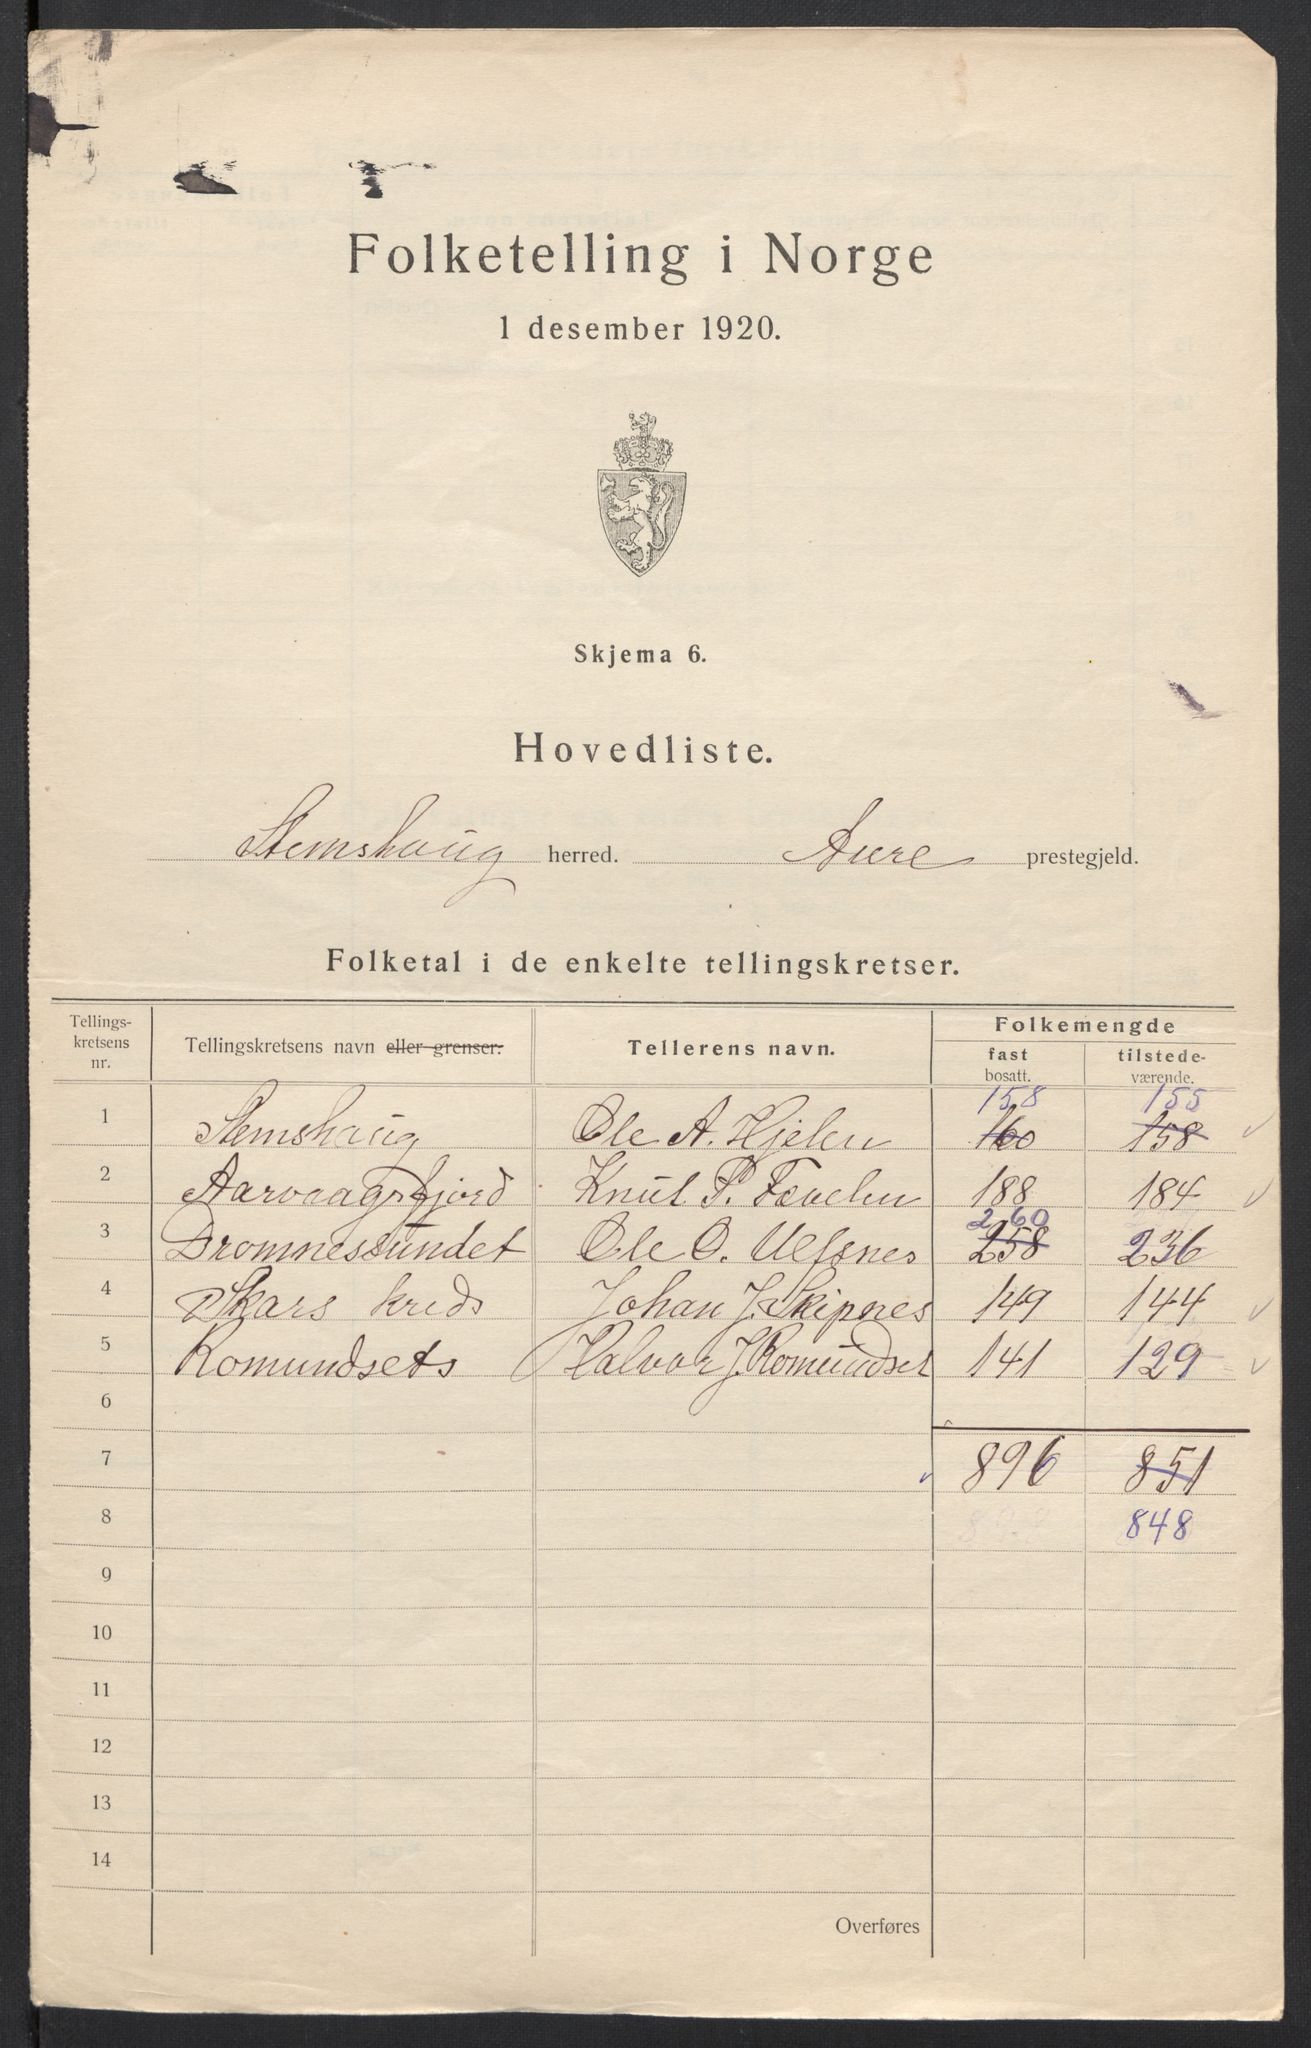 Folketelling i Norge
1 desember 1920.
Skjema 6.
Hovedliste.
Stemshaug herred. Aure prestegjeld.
Folketal i de enkelte tellingskretser.
Tellings-kretsens nr. Tellingskretsens navn eller grenser. Tellerens navn. Folkemengde
fast bosatt. tilstede-værende.
158 155
1 Stemshaug Ole A. Hjelen 160 158
2 Aarvaagsfjord Knut P. Tævelen 188 184
260
3 Dromnessundet Ole O. Ulfsnes 258 236
4 Skars kreds Johan J. Skipnes 149 144
5 Romundsets Halvor J. Romundset 141 129
6
7 896 851
8 848
9
10
11
12
13
14
Overføres